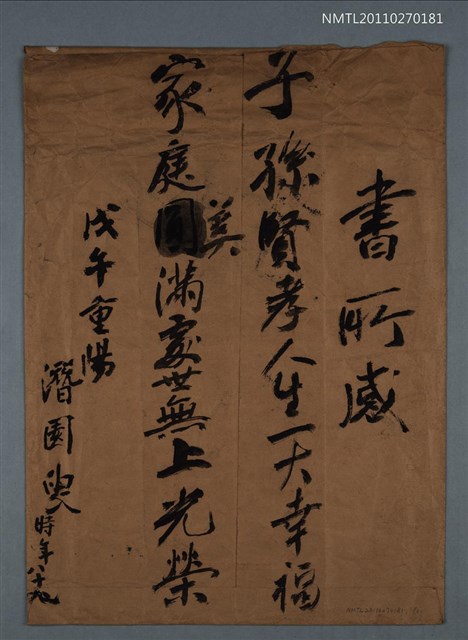 NMTL20110270181
書所感
子孫賢孝人生一大幸福
家庭美滿處世無上光榮
戊午重陽
潛園叟時年八十九